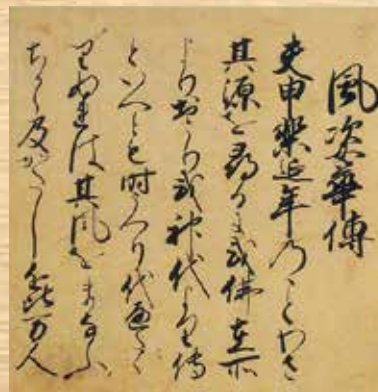 風姿華傳
夫申樂延年のことわさ
其源を尋るに或佛在所
よりおこり或神代より傳
といへとも時うつり代へたゝ
りぬれは其風をまなふ
ちから及かたし近比万人